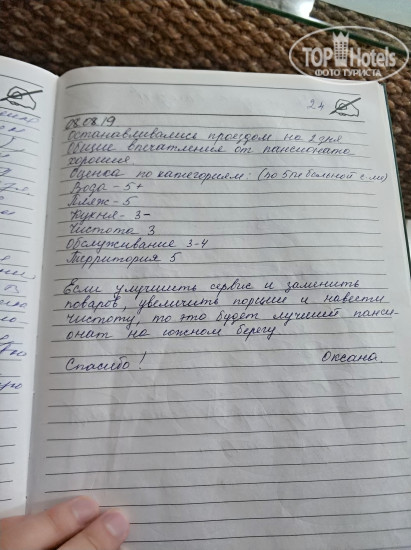 TOPHotels
ФОТО ТУРИСТА
24
08.08.19
Останавливались проездом на 2 дня
Общие впечатления от пансионата
хорошие
Оценка по категориям: (по 5ти бальной с-ми)
Вода - 5+
Пляж - 5
Кухня - 3-
Чистота 3
Обслуживание 3-4
Территория 5
Если улучшить сервис и заменить
поваров, увеличить порции и навести
чистоту, то это будет лучший панси-
онат на южном берегу
Спасибо! Оксана